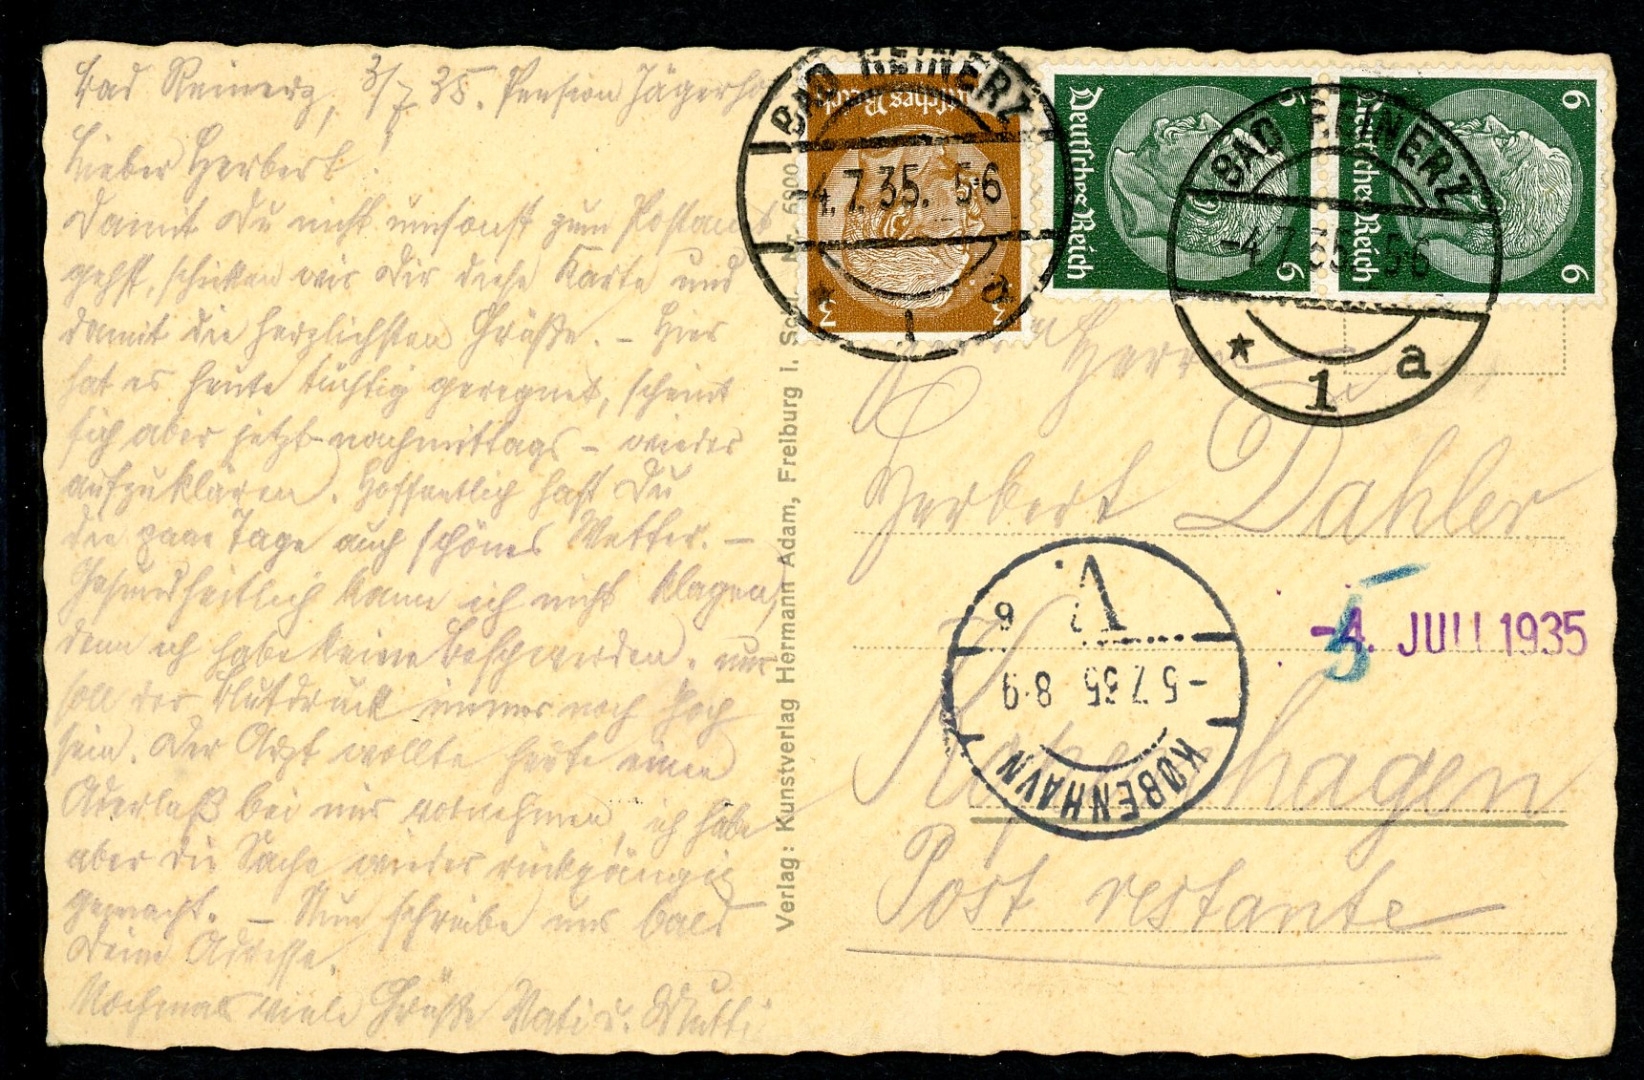 Bad Reinerz, 3/7 35. Pension Jägerho
Lieber Herbert.
Damit Du nicht umsonst zum Postamt
gehst, schicken wir Dir diese Karte und
damit die herzlichsten Grüße. – Hier
hat es heute tüchtig geregnet, scheint
sich aber jetzt – nachmittags – wieder
aufzuklären. Hoffentlich hast Du
die paar Tage auch schönes Wetter. –
Gesundheitlich kann ich nicht klagen,
denn ich habe keine Beschwerden, nur
soll der Blutdruck immer noch hoch
sein. Der Arzt wollte heute einen
Aderlaß bei mir vornehmen, ich habe
aber die Sache wieder rückgängig
gemacht. – Nun schreibe uns bald
Deine Adresse.
Nochmals viele Grüße Vati u. Mutti
Verlag: Kunstverlag Hermann Adam, Freiburg i.
BAD REINERZ
-4.7.35. 5-6
* 1 a
Deutsches Reich
3
3
Deutsches Reich
6
6
Deutsches Reich
6
6
BAD REINERZ
-4.7.35. 5-6
* 1 a
Herrn
Herbert Dahler
5
-4. JULI 1935
KØBENHAVN
-5.7.35 8-9
V.
Kopenhagen
Post restante